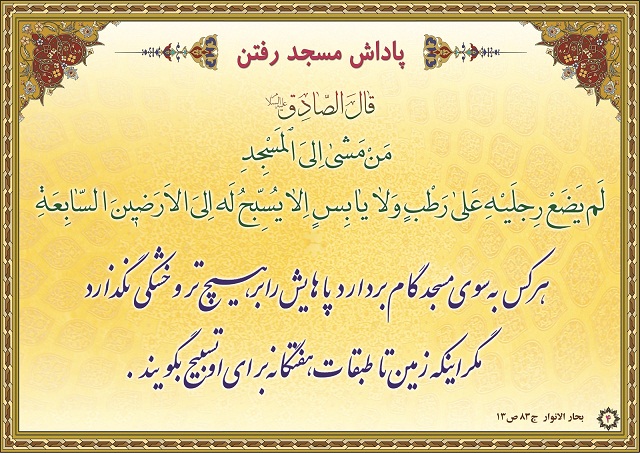 پاداش مسجد رفتن
قالَ الصّادِق علیه السلام
مَن مَشیٰ اِلیَ المَسجِدِ
لَم یَضَعْ رِجلَیْهِ عَلیٰ رَطْبٍ وَلا یابِسٍ اِلا یُسَبِّحُ لَه اِلیَ الاَرَضینَ السّابِعَةِ
هرکس به سوی مسجد گام بردارد پاهایش را بر هیچ تر و خشکی نگذارد
مگر اینکه زمین تا طبقات هفتگانه برای او تسبیح بگویند .
بحار الانوار ج ۸۳ ص ۱۳
۴